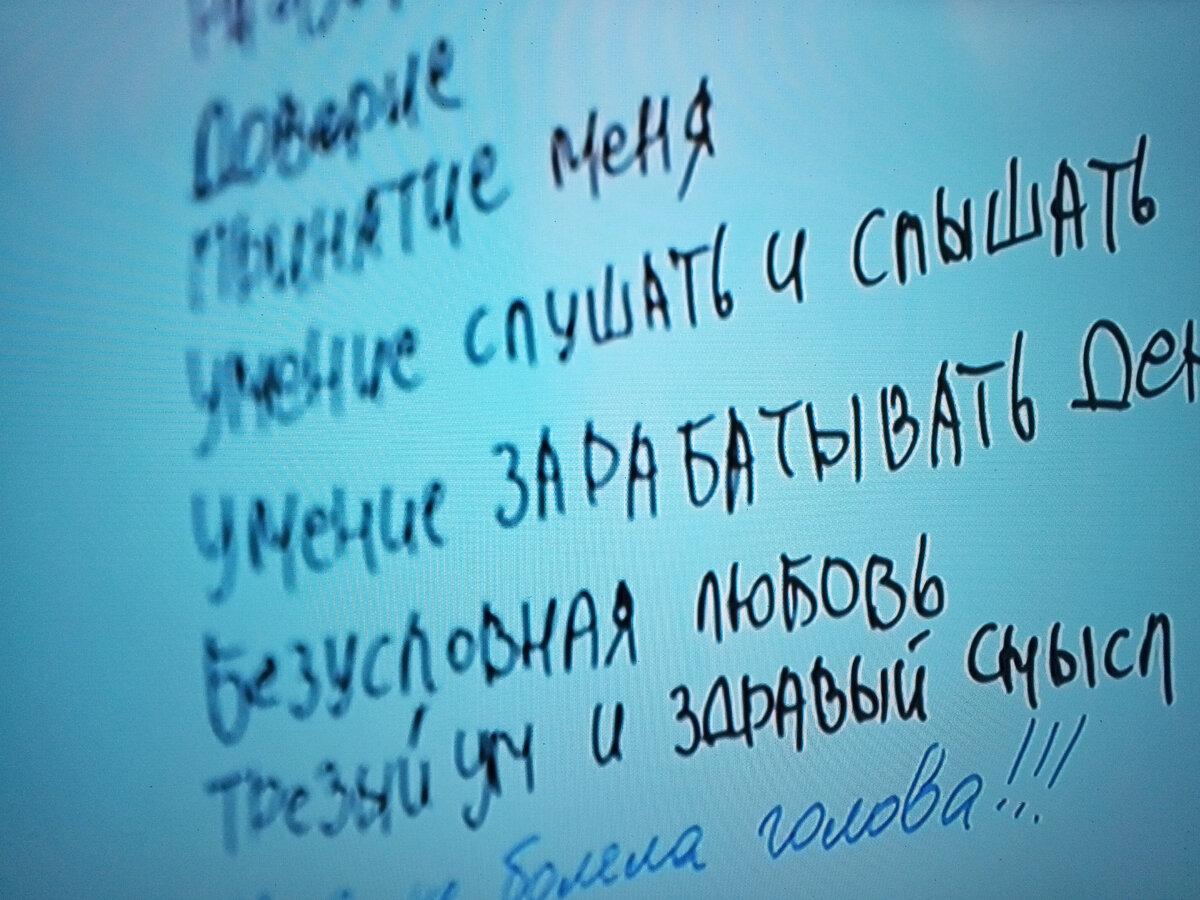 Доверие
принятие меня
умение слушать и слышать
умение зарабатывать ден
Безусловная любовь
трезый ум и здравый смысл
болела голова!!!